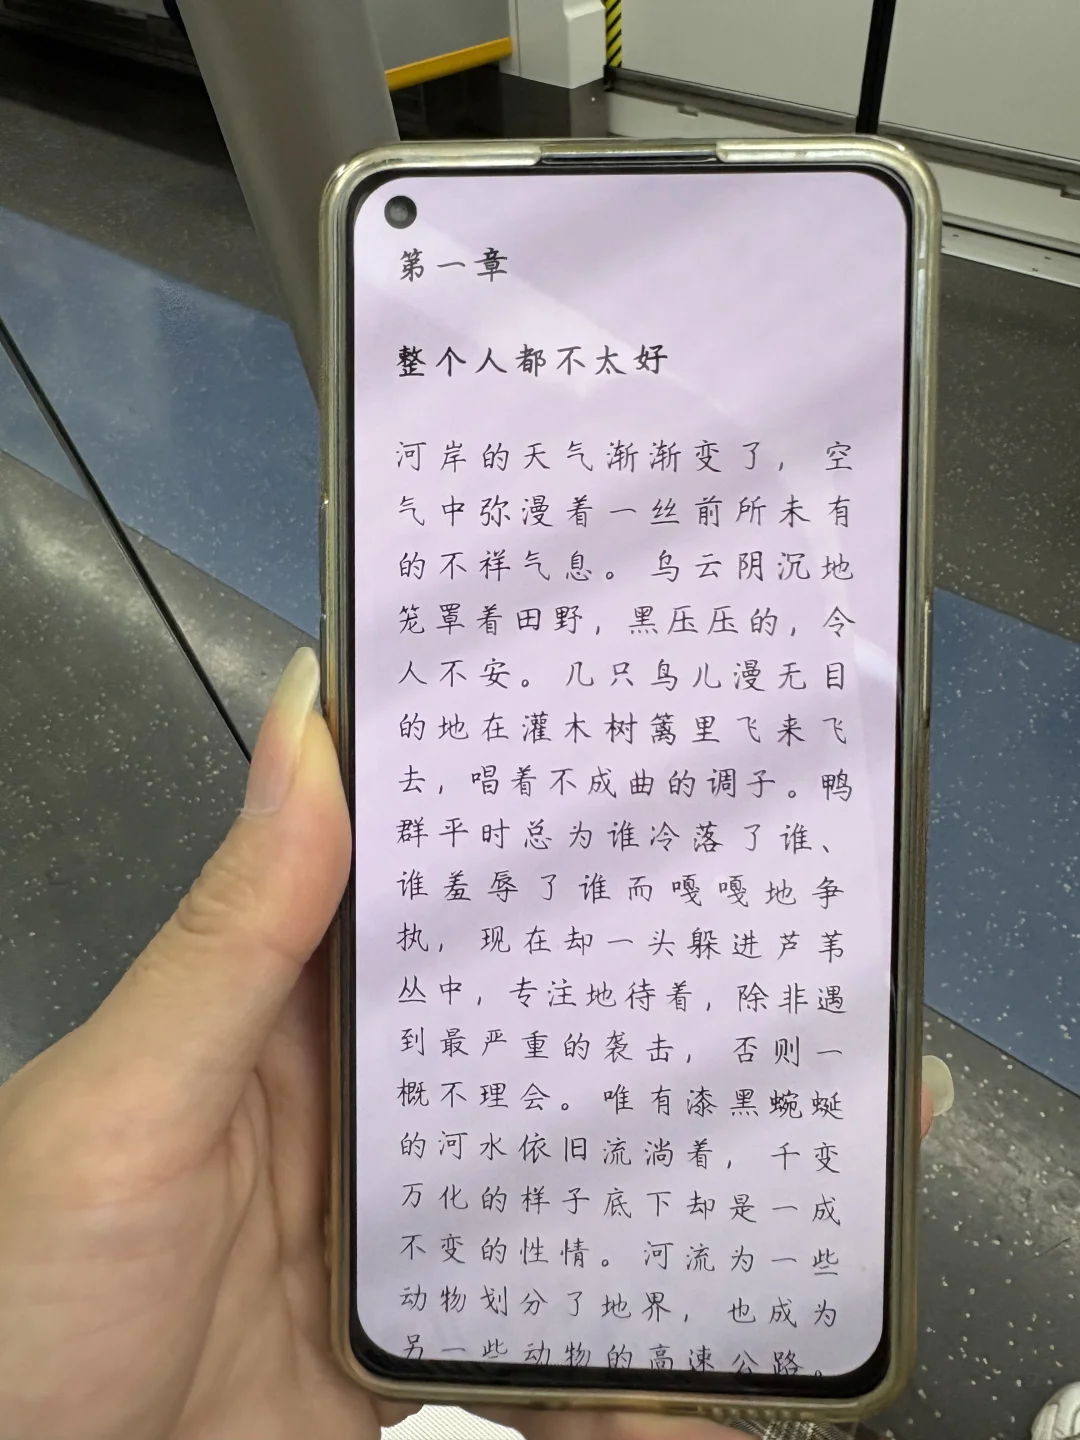 第一章
整个人都不太好
河岸的天气渐渐变了，空
气中弥漫着一丝前所未有
的不祥气息。乌云阴沉地
笼罩着田野，黑压压的，令
人不安。几只鸟儿漫无目
的地在灌木树篱里飞来飞
去，唱着不成曲的调子。鸭
群平时总为谁冷落了谁、
谁羞辱了谁而嘎嘎地争
执，现在却一头躲进芦苇
丛中，专注地待着，除非遇
到最严重的袭击，否则一
概不理会。唯有漆黑蜿蜒
的河水依旧流淌着，千变
万化的样子底下却是一成
不变的性情。河流为一些
动物划分了地界，也成为
另一些动物的高速公路。